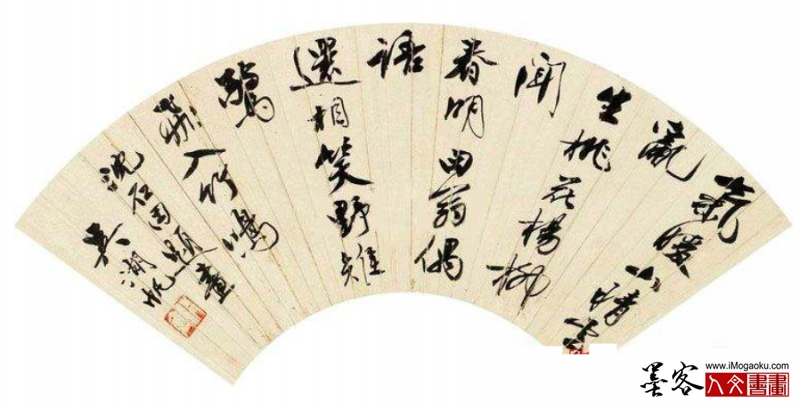 氣暖山晴
生桃花楊柳
間
春明田翁偶
語
還相笑野雉
驚
飛入竹鳴
沈石田題畫
吳湖帆
墨客
www.iMogaoku.com
人文書畫